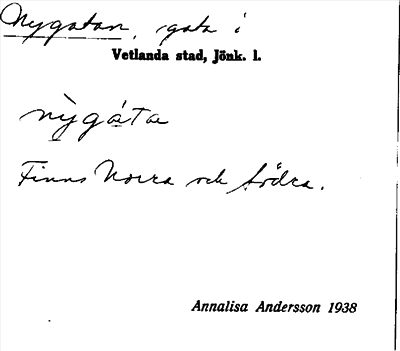 Nygatan, gata i
Vetlanda stad, Jönk. l.
nỳgáta
Finns Norra och Södra.
Annalisa Andersson 1938